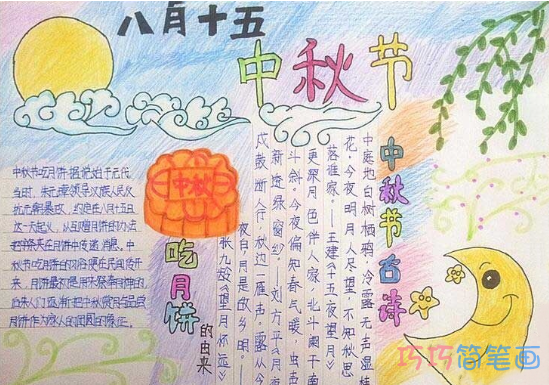 八月十五
中秋节
中秋节吃月饼据说始于元代
当时,朱元璋领导汉族人民反
抗元朝暴政,约定在八月十五日
这一天起义,以互赠月饼的办法
把字条夹在月饼中传递消息。中
秋节吃月饼的习俗便在民间传开
来。月饼最初是用来祭奉月神的
后来人们逐渐把中秋赏月与品尝
月饼作为家人团圆的象征。
中秋
吃月饼
的由来
中秋节古诗
中庭地白树栖鸦,冷露无声湿桂
花。今夜明月人尽望,不知秋思
落谁家。—王建《十五夜望月》
更深月色伴人家,北斗阑干南
斗斜。今夜偏知春气暖,虫声
新透绿窗纱。—刘方平《月夜》
戍鼓断人行,秋边一雁声。露从今
夜白,月是故乡明。
张九龄《望月怀远》
巧巧简笔画